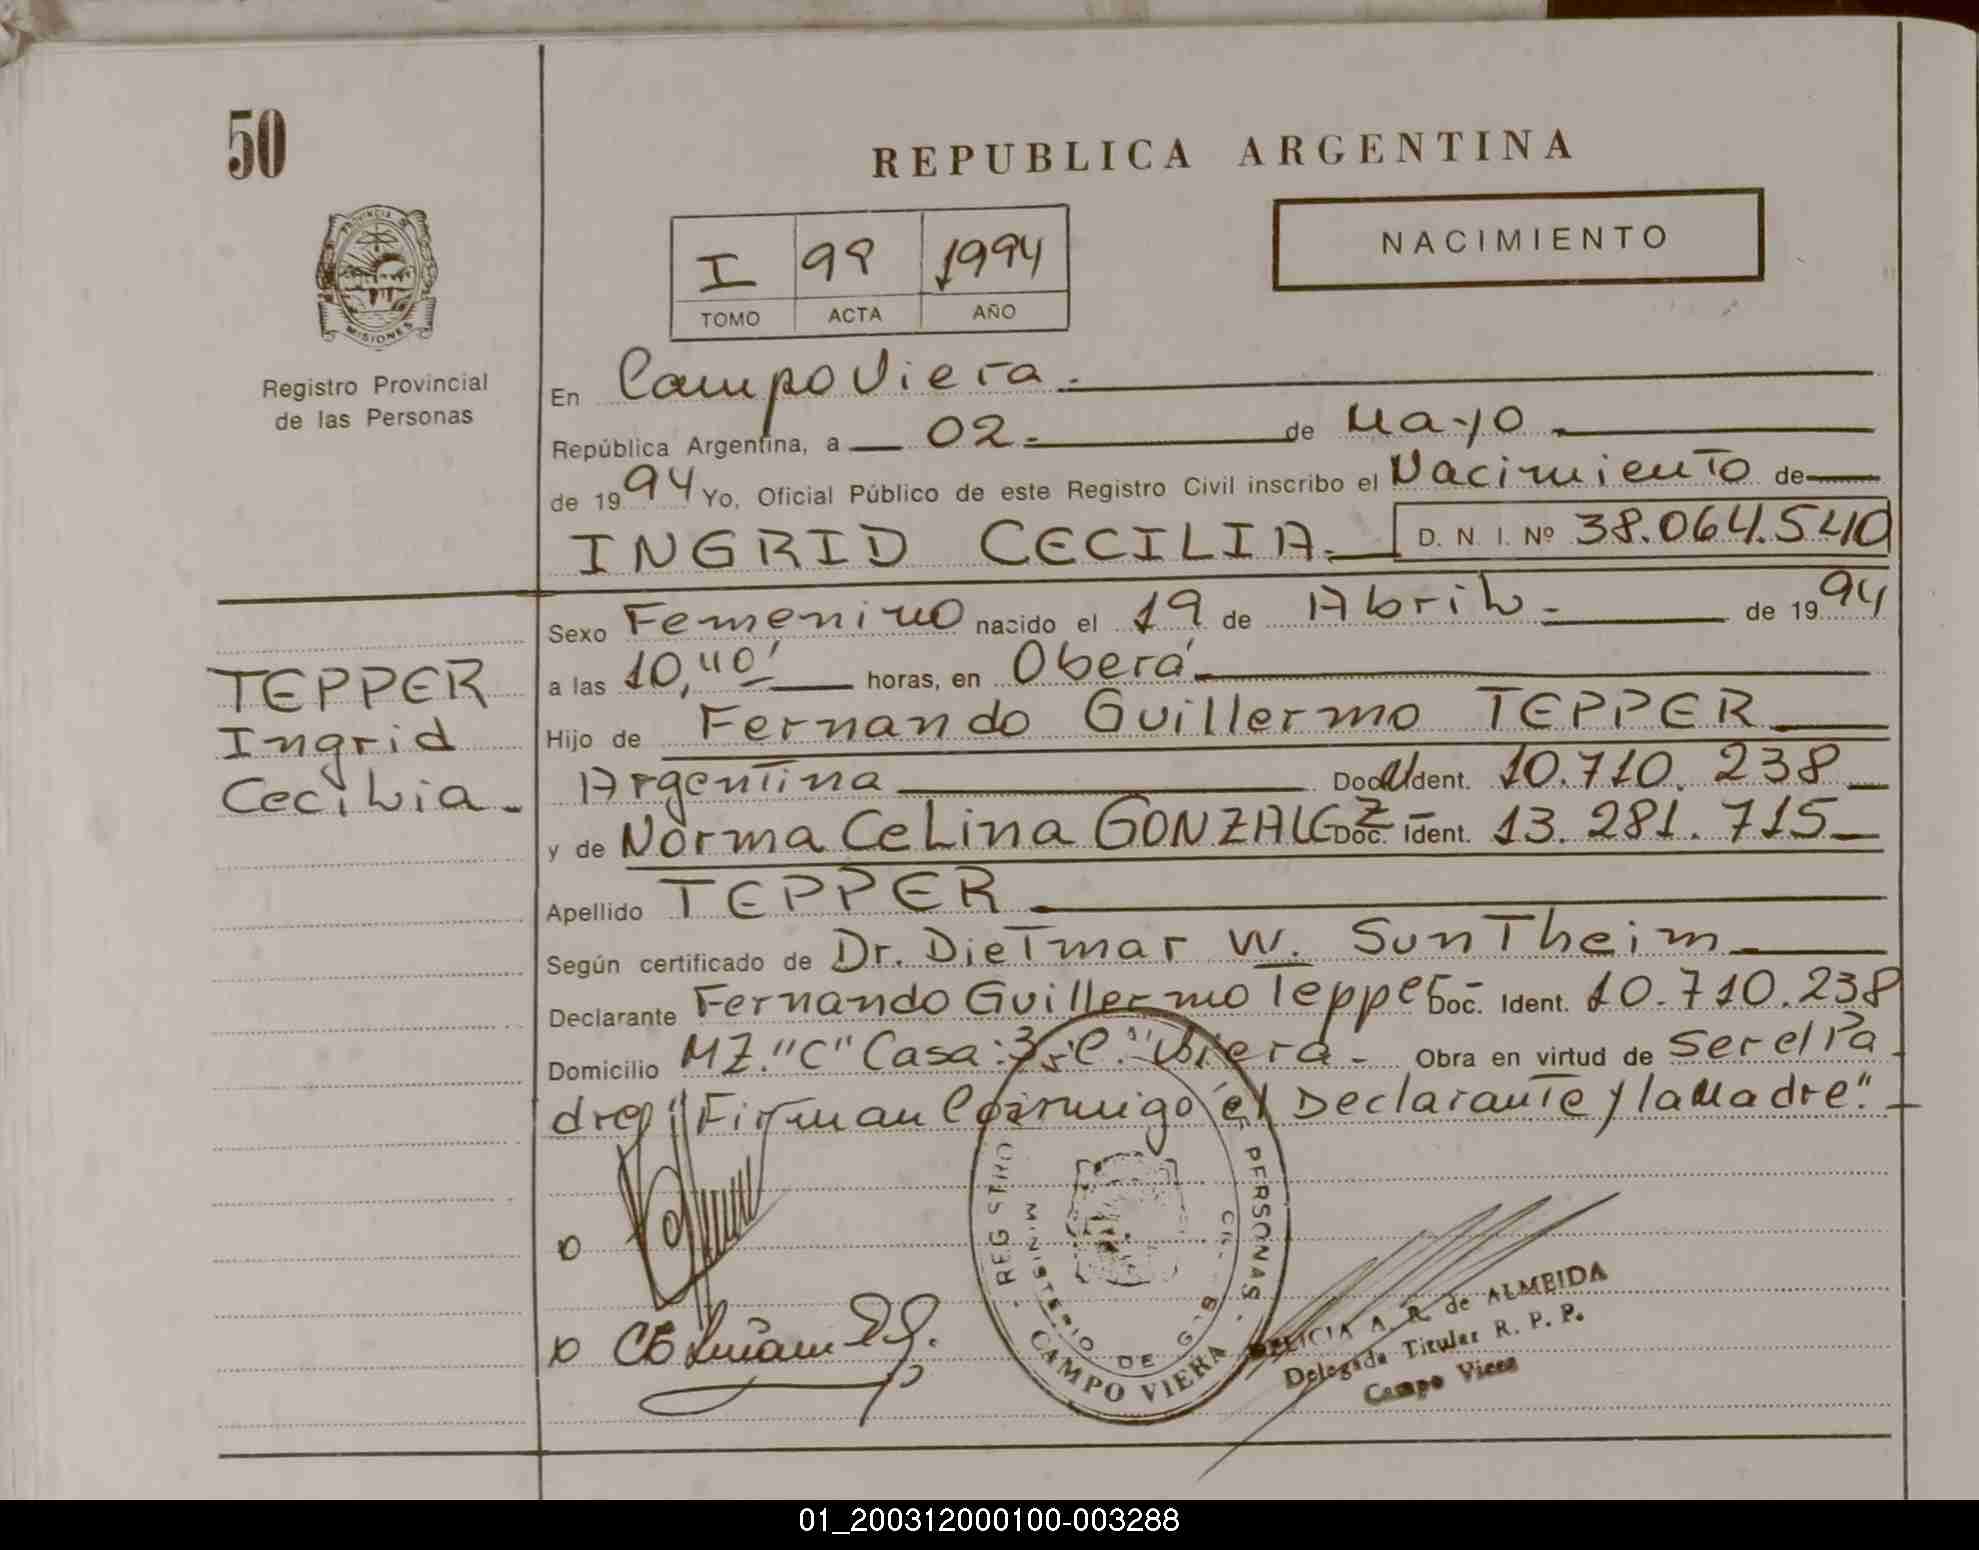 50
REPUBLICA ARGENTINA
NACIMIENTO
PROVINCIA DE
MISIONES
Registro Provincial
de las Personas
I 99 1994
TOMO ACTA AÑO
En Campo Viera.-
República Argentina, a 02.- de Mayo
de 1994 Yo, Oficial Público de este Registro Civil inscribo el Nacimiento de
INGRID CECILIA.- D. N. I. Nº 38.064.540
Sexo Femenino nacido el 19 de Abril.- de 1994
a las 10,40' horas, en Oberá
Hijo de Fernando Guillermo TEPPER
Argentina Doc. Ident. 10.710.238
y de Norma Celina GONZALEZ Doc. Ident. 13.281.715
Apellido TEPPER
Según certificado de Dr. Dietmar W. Suntheim
Declarante Fernando Guillermo Tepper Doc. Ident. 10.710.238
Domicilio MZ. "C" Casa: 3 C. Viera.- Obra en virtud de Ser el Pa
dre "Firman Conmigo el Declarante y la Madre".-
TEPPER
Ingrid
Cecilia.-
REGISTRO PERSONAS
MINISTERIO DE GOB
CAMPO VIERA
A. R. de ALMEIDA
Delegada Titular R. P. P.
Campo Viera
01_200312000100-003288